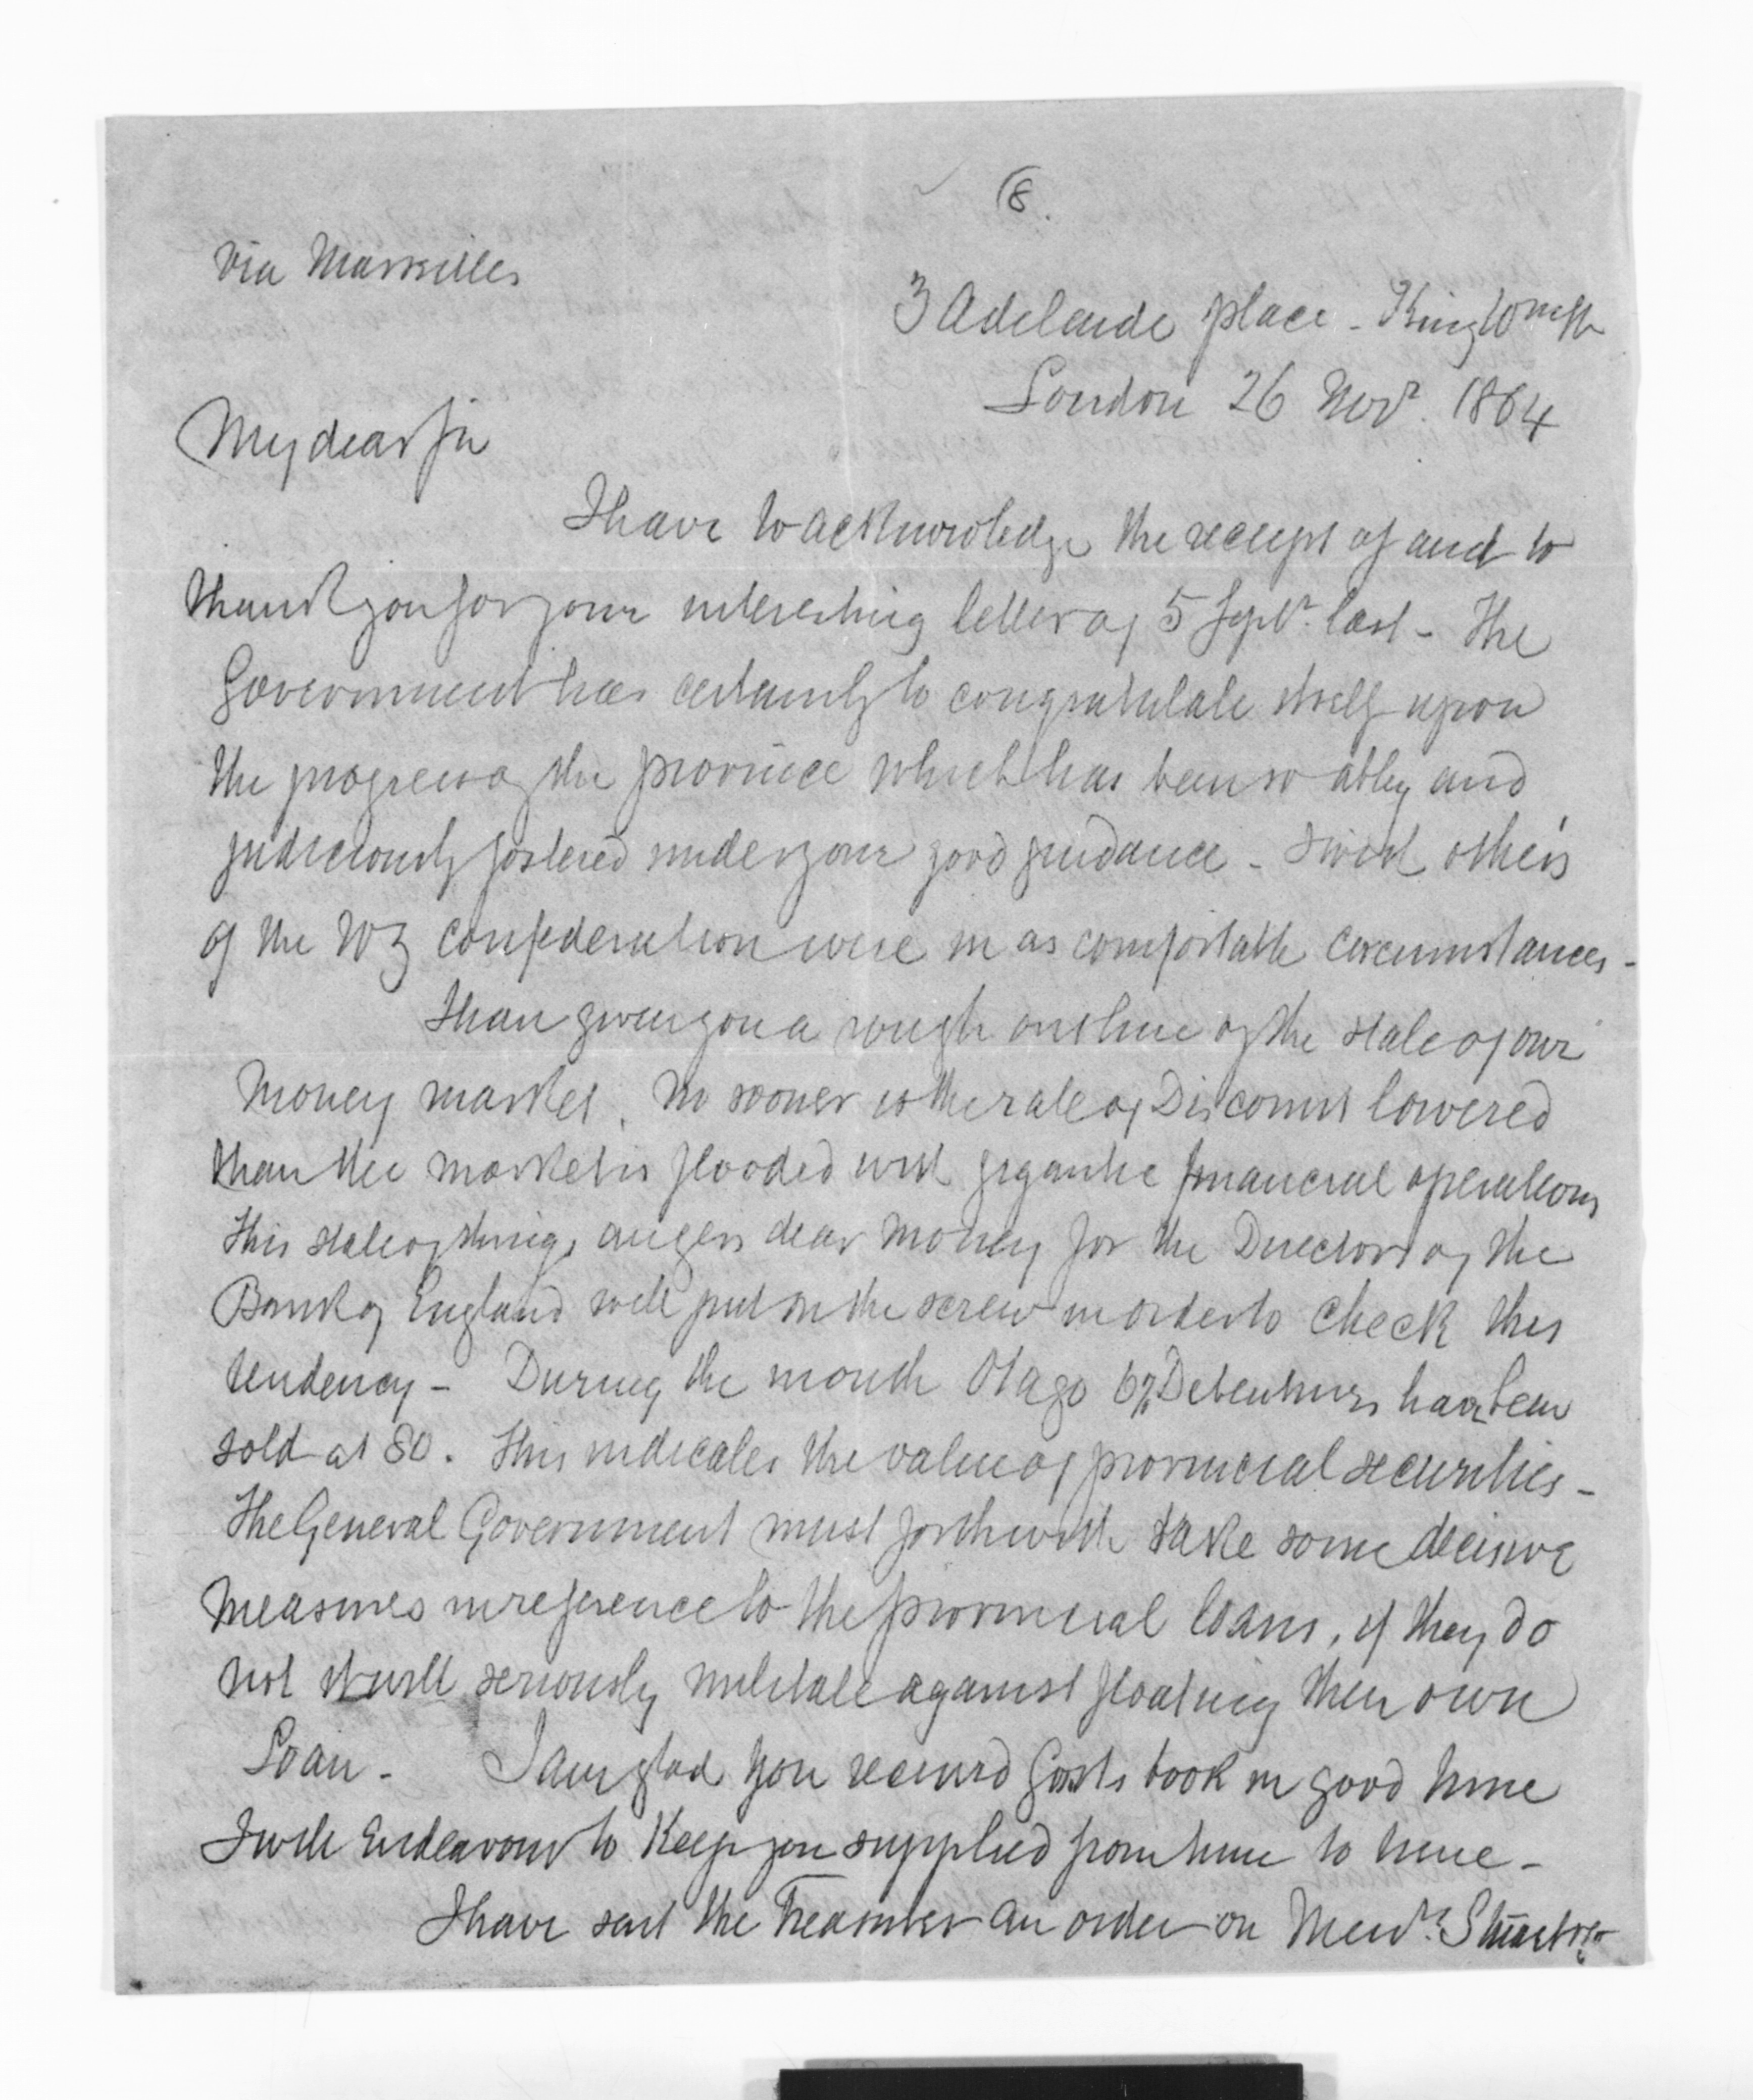 (8.
via Marseilles
3 Adelaide place - King Wm St
London 26 Novr. 1864
My dear Sir
I have to acknowledge the receipt of and to
thank you for your interesting letter of 5 Septr. last - The
Government has certainly to congratulate itself upon
the progress of the province which has been so ably and
judiciously fostered under your good guidance - I wish others
of the NZ confederation were in as comfortable circumstances -
I have given you a rough outline of the state of our
Money market. No sooner is the rate of Discount lowered
than the market is flooded with gigantic financial operations
This state of things augers dear money for the Directors of the
Bank of England will put on the screw in order to check this
tendency - During the month Otago 6% Debentures have been
sold at 80. This indicates the value of provincial securities -
The General Government must forthwith take some decisive
measures in reference to the provincial loans, if they do
not it will seriously militate against floating their own
Loan - I am glad you received book in good time
I will endeavour to keep you supplied from time to time -
I have sent the Treasurer an order on Messrs. Stuart &Co